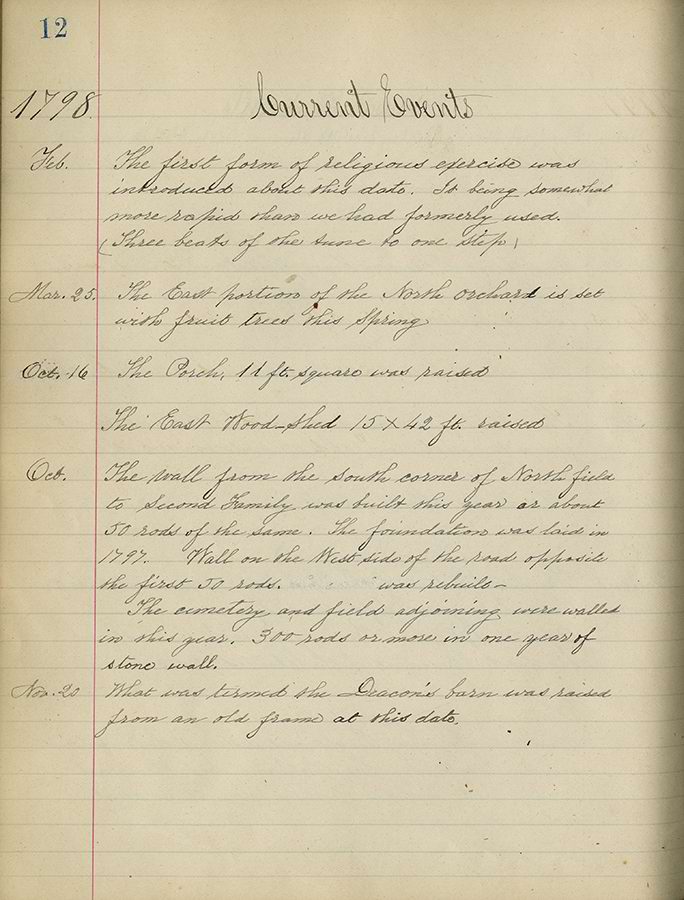 12
1798. Current Events
Feb. The first form of religious exercise was
introduced about this date. It being somewhat
more rapid than we had formerly used.
(Three beats of the tune to one step)
Mar. 25. The East portion of the North orchard is set
with fruit trees this Spring
Oct. 16 The Porch, 11 ft. square was raised
The East Wood-shed 15 X 42 ft. raised
Oct. The wall from the south corner of North field
to Second Family was built this year or about
50 rods of the same. The foundation was laid in
1797. Wall on the West side of the road opposite
the first 50 rods. was rebuilt-
The cemetery and field adjoining were walled
in this year. 300 rods or more in one year of
stone wall.
Nov. 20 What was termed the Deacon's barn was raised
from an old frame at this date.